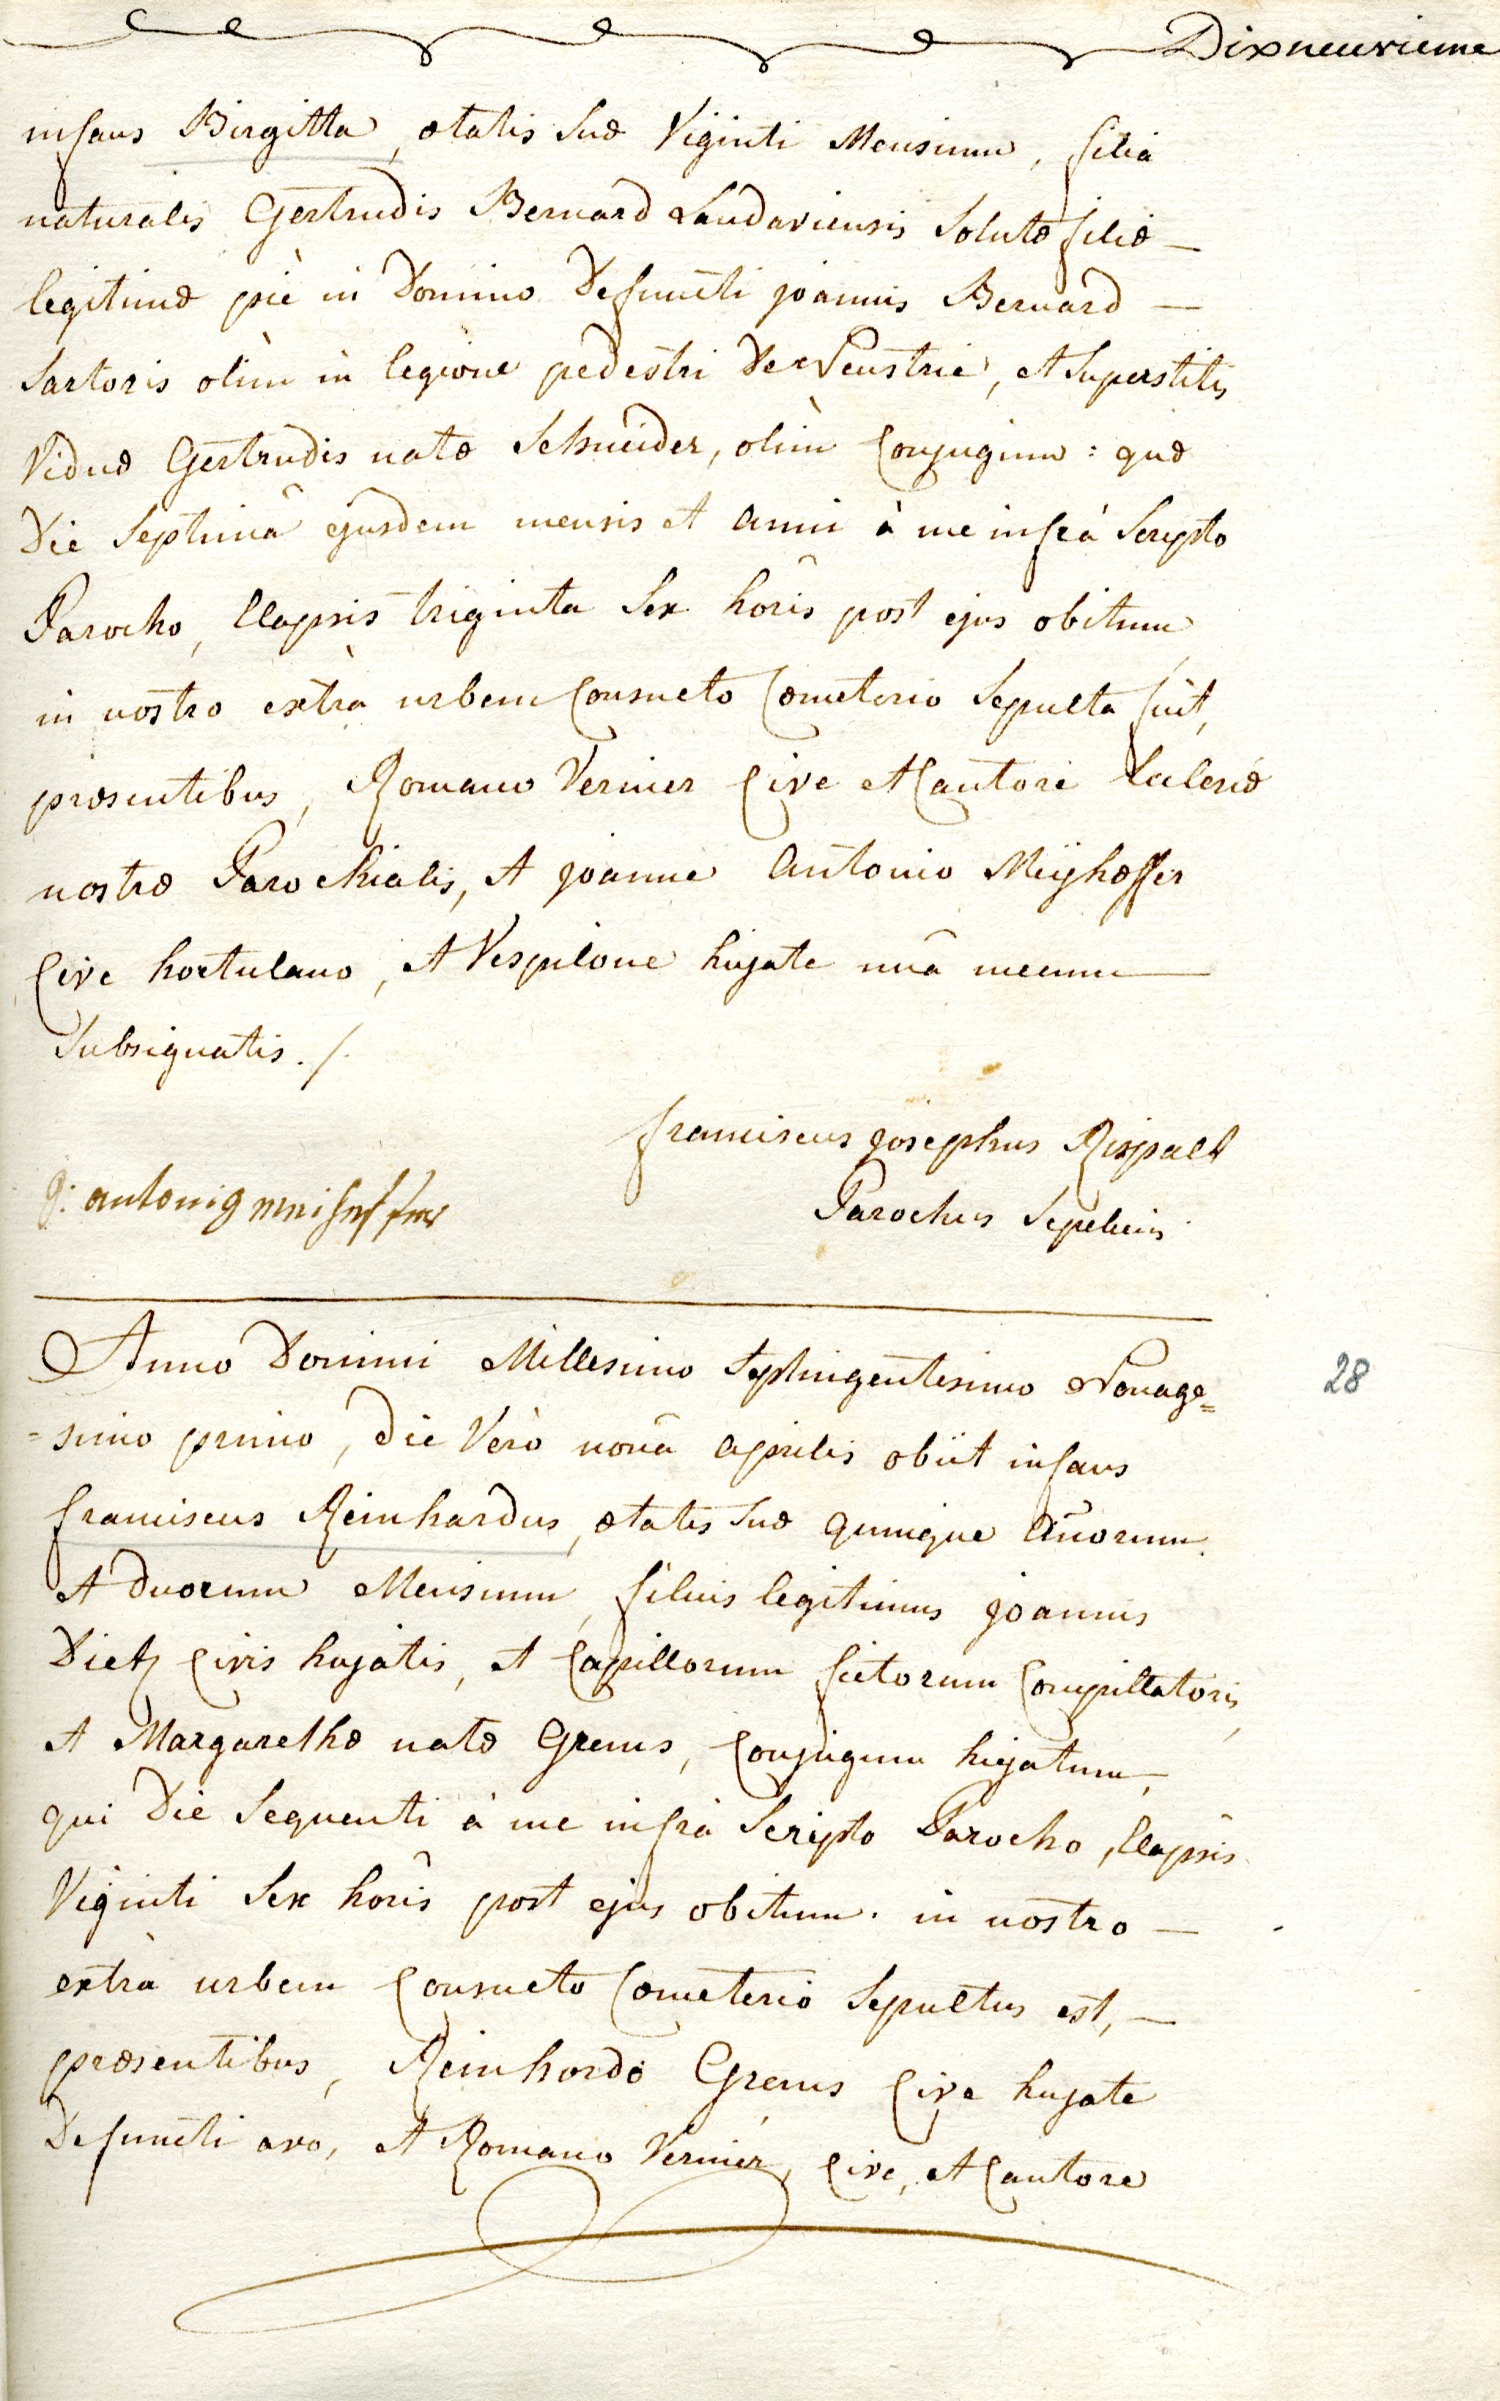 Dixneuvieme
infans Birgitta, ætatis suæ Viginti Mensium, filia
naturalis Gertrudis Bernard Landaviensis solutæ filiæ —
legitimæ piè in Domino Defuncti joannis Bernard —
Sartoris olim in legione pedestri De Neustrie, et Superstitis
Viduæ Gertrudis natæ Schneider, olim Conjugum : quæ
Die Septimâ ejusdem mensis et anni à me infrà Scripto
Parocho, Elapsis triginta Sex horis post ejus obitum
in nostro extrà urbem Consueto Cœmeterio Sepulta fuit,
præsentibus, Romano Vernier Cive et Cantore Ecclesiæ
nostræ Parochialis, et joanne Antonio Meÿhoffer
Cive hortulano, et Vespilone hujate unà mecum —
Subsignatis. /.
franciscus josephus Rispalt
J: antonig meihoffer
Parochus Sepeliens
Anno Domini Millesimo Septingentesimo Nonage=
28
=simo primo, Die Verò nonâ aprilis obiit infans
franciscus Reinhardus, ætatis suæ quinque añorum
et duorum Mensium, filius legitimus joannis
Dietz Civis hujatis, et Capillorum fictorum Compillatoris,
et Margarethæ natæ Grenus, Conjugum hujatum,
qui Die Sequenti à me infrà Scripto Parocho, Elapsis
Viginti Sex horis post ejus obitum. in nostro —
extrà urbem Consueto Cœmeterio Sepultus est, —
præsentibus, Reinhardo Grenus Cive hujate
Defuncti avo, et Romano Vernier, Cive, et Cantore